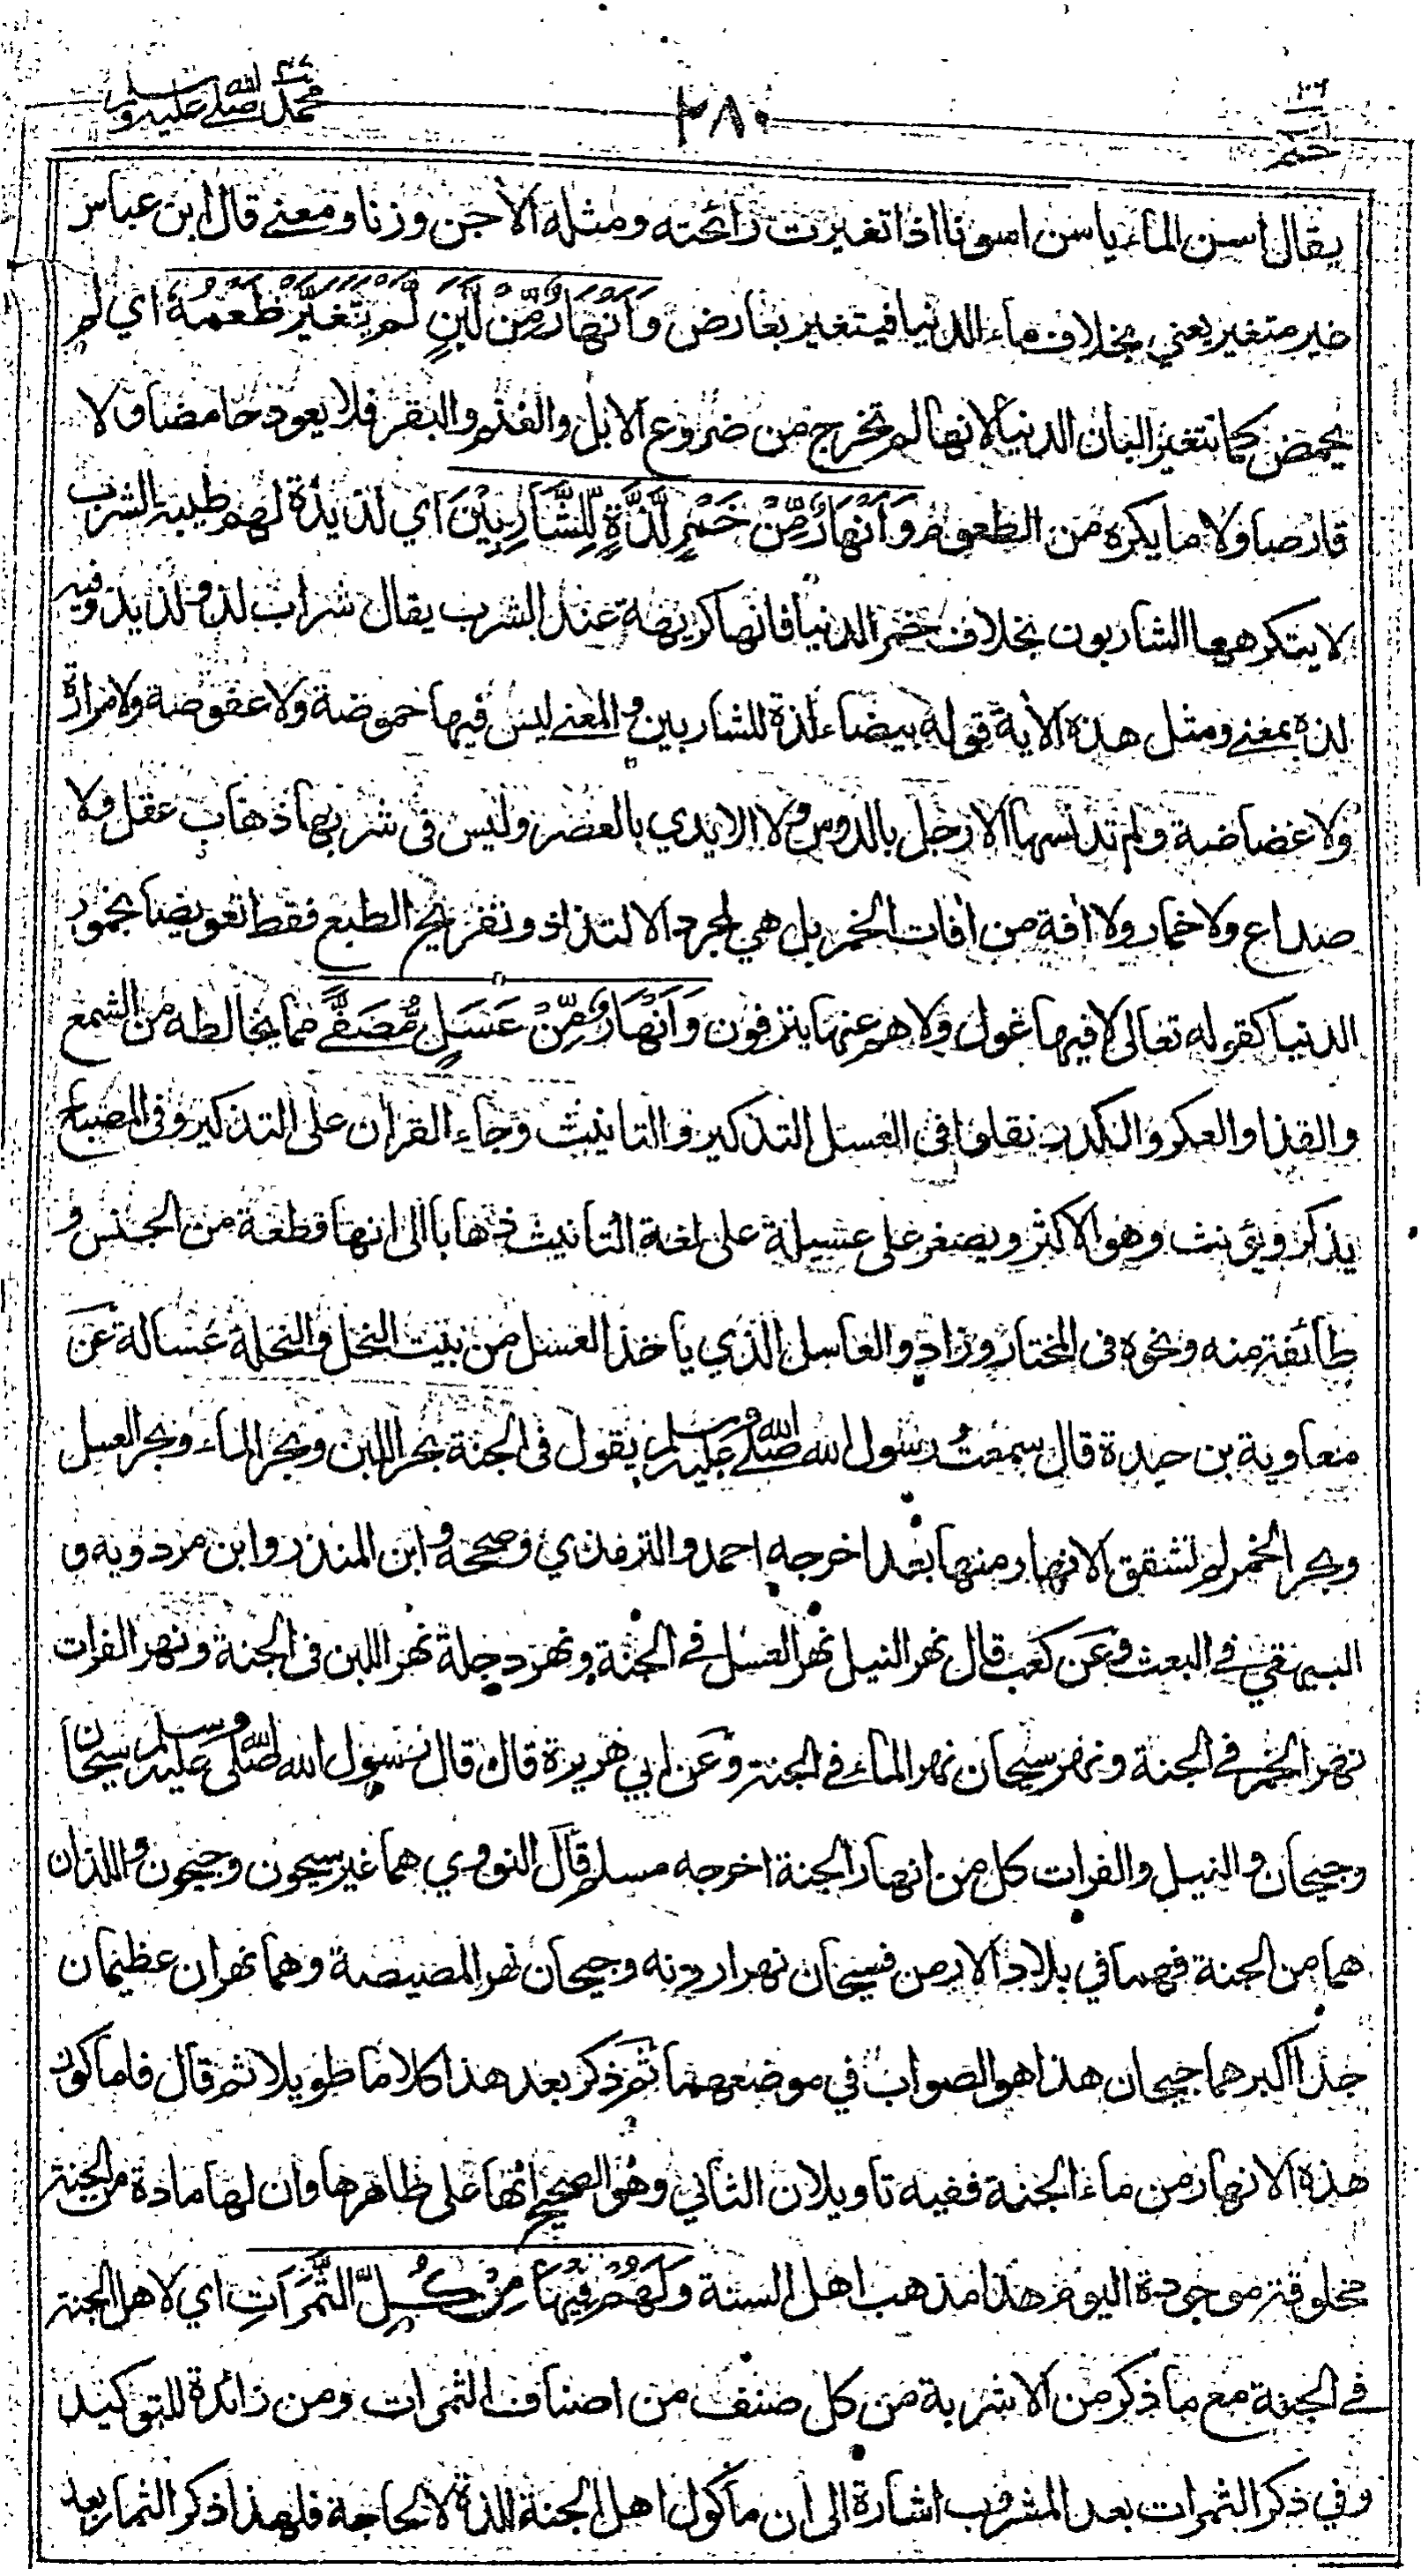 حم ٢٦
٢٨٠
محمد صلى الله عليه وسلم
يقال اسن الماء ياسن اسونا اذا تغيرت رائحته ومثله الأجن وزنا ومعنے قال ابن عباس
غير متغير يعني بخلاف ماء الدنيا فيتغير بعارض وَأَنْهَارٌ مِّنْ لَّبَنٍ لَّمْ يَتَغَيَّرْ طَعْمُهُ اي لم
يحمض كما تتغير البان الدنيا لانها لم تخرج من ضروع الابل والغنم والبقر فلا يعود حامضا ولا
قارصا ولا ما يكره من الطعوم وَأَنْهَارٌ مِّنْ خَمْرٍ لَّذَّةٍ لِّلشَّارِبِيْنَ اي لذيذة لهم طيبة الشرب
لا يتكرهها الشاربون بخلاف خمر الدنيا فانها كريهة عند الشرب يقال شراب لذ ولذيذ وفيه
لذة بمعنے ومثل هذه الأية قوله بيضاء لذة للشاربين والمعنے ليس فيها حموضة ولا عفوصة ولا مرارة
ولا غضاضة ولم تدنسها الارجل بالدوس ولا الايدي بالعصر وليس في شربها ذهاب عقل ولا
صداع ولا خمار ولا أفة من أفات الخمر بل هي لمجرد الالتذاذ وتفريح الطبع فقط تعويضا بخمور
الدنيا كقوله تعالى لا فيها غول ولا هم عنها ينزفون وَأَنْهَارٌ مِّنْ عَسَلٍ مُّصَفًّى مما يخالطه من الشمع
والقذا والعكر والكدر نقلوا في العسل التذكير والتانيث وجاء القرأن على التذكير وفي المصباح
يذكر ويؤنث وهو الاكثر ويصغر على عسيلة على لغة التانيث ذهابا الى انها قطعة من الجنس و
طائفة منه ونحوه في المختار وزاد والعاسل الذي ياخذ العسل من بيت النحل والنحلة عسالة عن
معاوية بن حيدة قال سمعتُ رسول الله صلى الله عليه وسلم يقول في الجنة بحر اللبن وبحر الماء وبحر العسل
وبحر الخمر ثم تشقق الانهار منها بعد اخرجه احمد والترمذي وصححه وابن المنذر وابن مردويه و
البيهقي في البعث وعن كعب قال نهر النيل نهر العسل في الجنة ونهر دجلة نهر اللبن في الجنة ونهر الفرات
نهر الخمر في الجنة ونهر سيحان نهر الماء في الجنة وعن ابي هريرة قال قال رسول الله صلى الله عليه وسلم سيحان
وجيحان والنيل والفرات كل من انهار الجنة اخرجه مسلم قال النووي هما غير سيحون وجيحون واللذان
هما من الجنة فهما في بلاد الارمن فسيحان نهر اردنه وجيحان نهر المصيصة وهما نهران عظيمان
جدا اكبرهما جيحان هذا هو الصواب في موضعهما ثم ذكر بعد هذا كلاما طويلا ثم قال فاما كون
هذه الانهار من ماء الجنة ففيه تاويلان الثاني وهو الصحيح انها على ظاهرها وان لها مادة من الجنة
مخلوقة موجودة اليوم هذا مذهب اهل السنة وَلَهُمْ فِيْهَا مِنْ كُلِّ الثَّمَرَاتِ اي لاهل الجنة
في الجنة مع ما ذكر من الاشربة من كل صنف من اصناف الثمرات ومن زائدة للتوكيد
وفي ذكر الثمرات بعد المشروب اشارة الى ان ماكول اهل الجنة للذة لا لحاجة فلهذا ذكر الثمار بعد